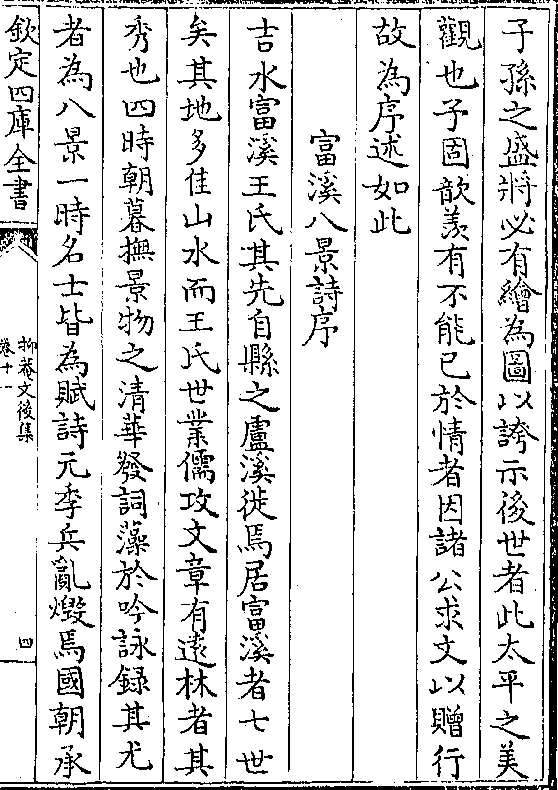 子孫之盛將必有繪為圖以誇示後世者此太平之美
觀也予固歆羨有不能已於情者因諸公求文以贈行
故為序述如此
富溪八景詩序
吉水富溪王氏其先自縣之盧溪徙焉居富溪者七世
矣其地多佳山水而王氏世業儒攻文章有遠林者其
秀也四時朝暮撫景物之清華發詞藻於吟詠錄其尤
者為八景一時名士皆為賦詩元季兵亂燬焉國朝承
欽定四庫全書
抑菴文後集
卷十一
四